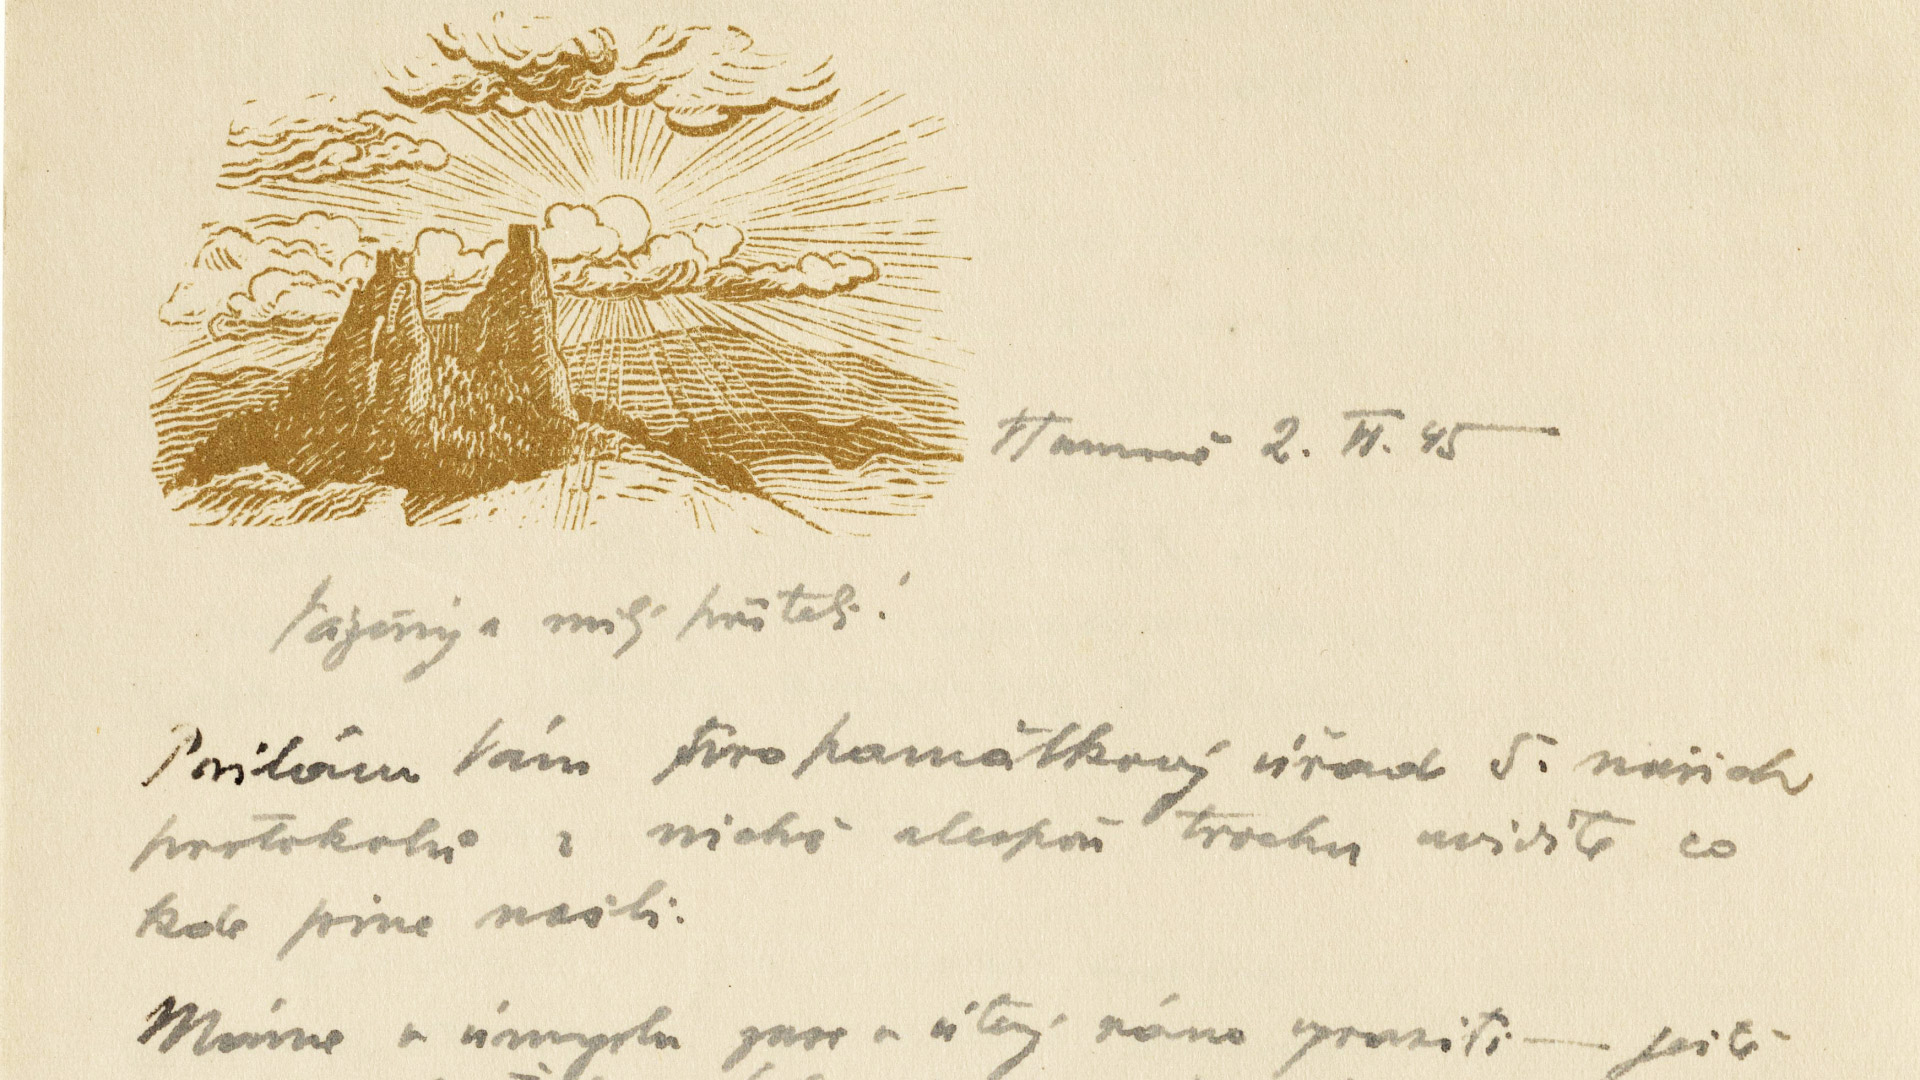 2. II. 45
Vážený a milý příteli!
Posílám Vám pro památkový úřad 5. našich
protokolů z nichž alespoň trochu uvidíte co
kde jsme našli.
Máme v úmyslu zase v úterý ráno vyraziti — ještě